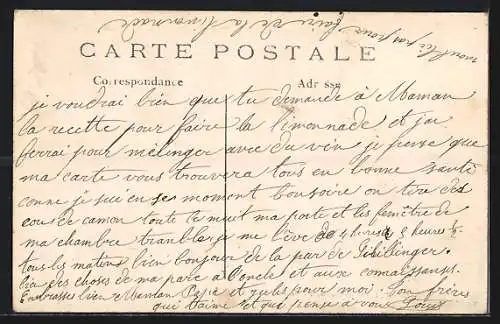 CARTE POSTALE
Correspondance
Adresse
je voudrai bien que tu demande à Maman
la recette pour faire la limonnade et j'ai
ferrai pour mélenger avec du vin je pense que
ma carte vous trouvera tous en bonne santé
conne je suis en se moment bonsoire on tire des
cous de canon toute la nuit ma porte et les fenêtre de
ma chambre tremble, je me lève de 4 heures à 5 heures ½
tous les matens bien bonjour de la par de
bien des choses de ma pare à l'oncle et aux connaissanss.
Embrasses bien Maman Papa et Jules pour moi. Ton frères
qui t'aime et que pense à vous Louis
faire de la limonnade
pas pour